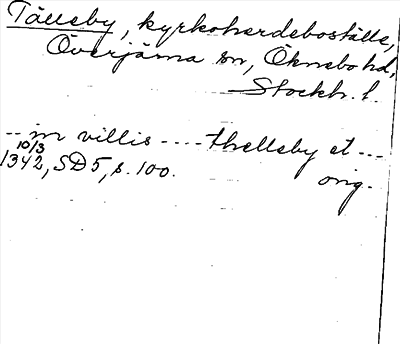 Tälleby, kyrkoherdeboställe,
Överjärna sn, Öknebo hd,
Stockh. l.
-- in villis ---- thelleby et ---
10/3
1342, SD5, s. 100.
orig.